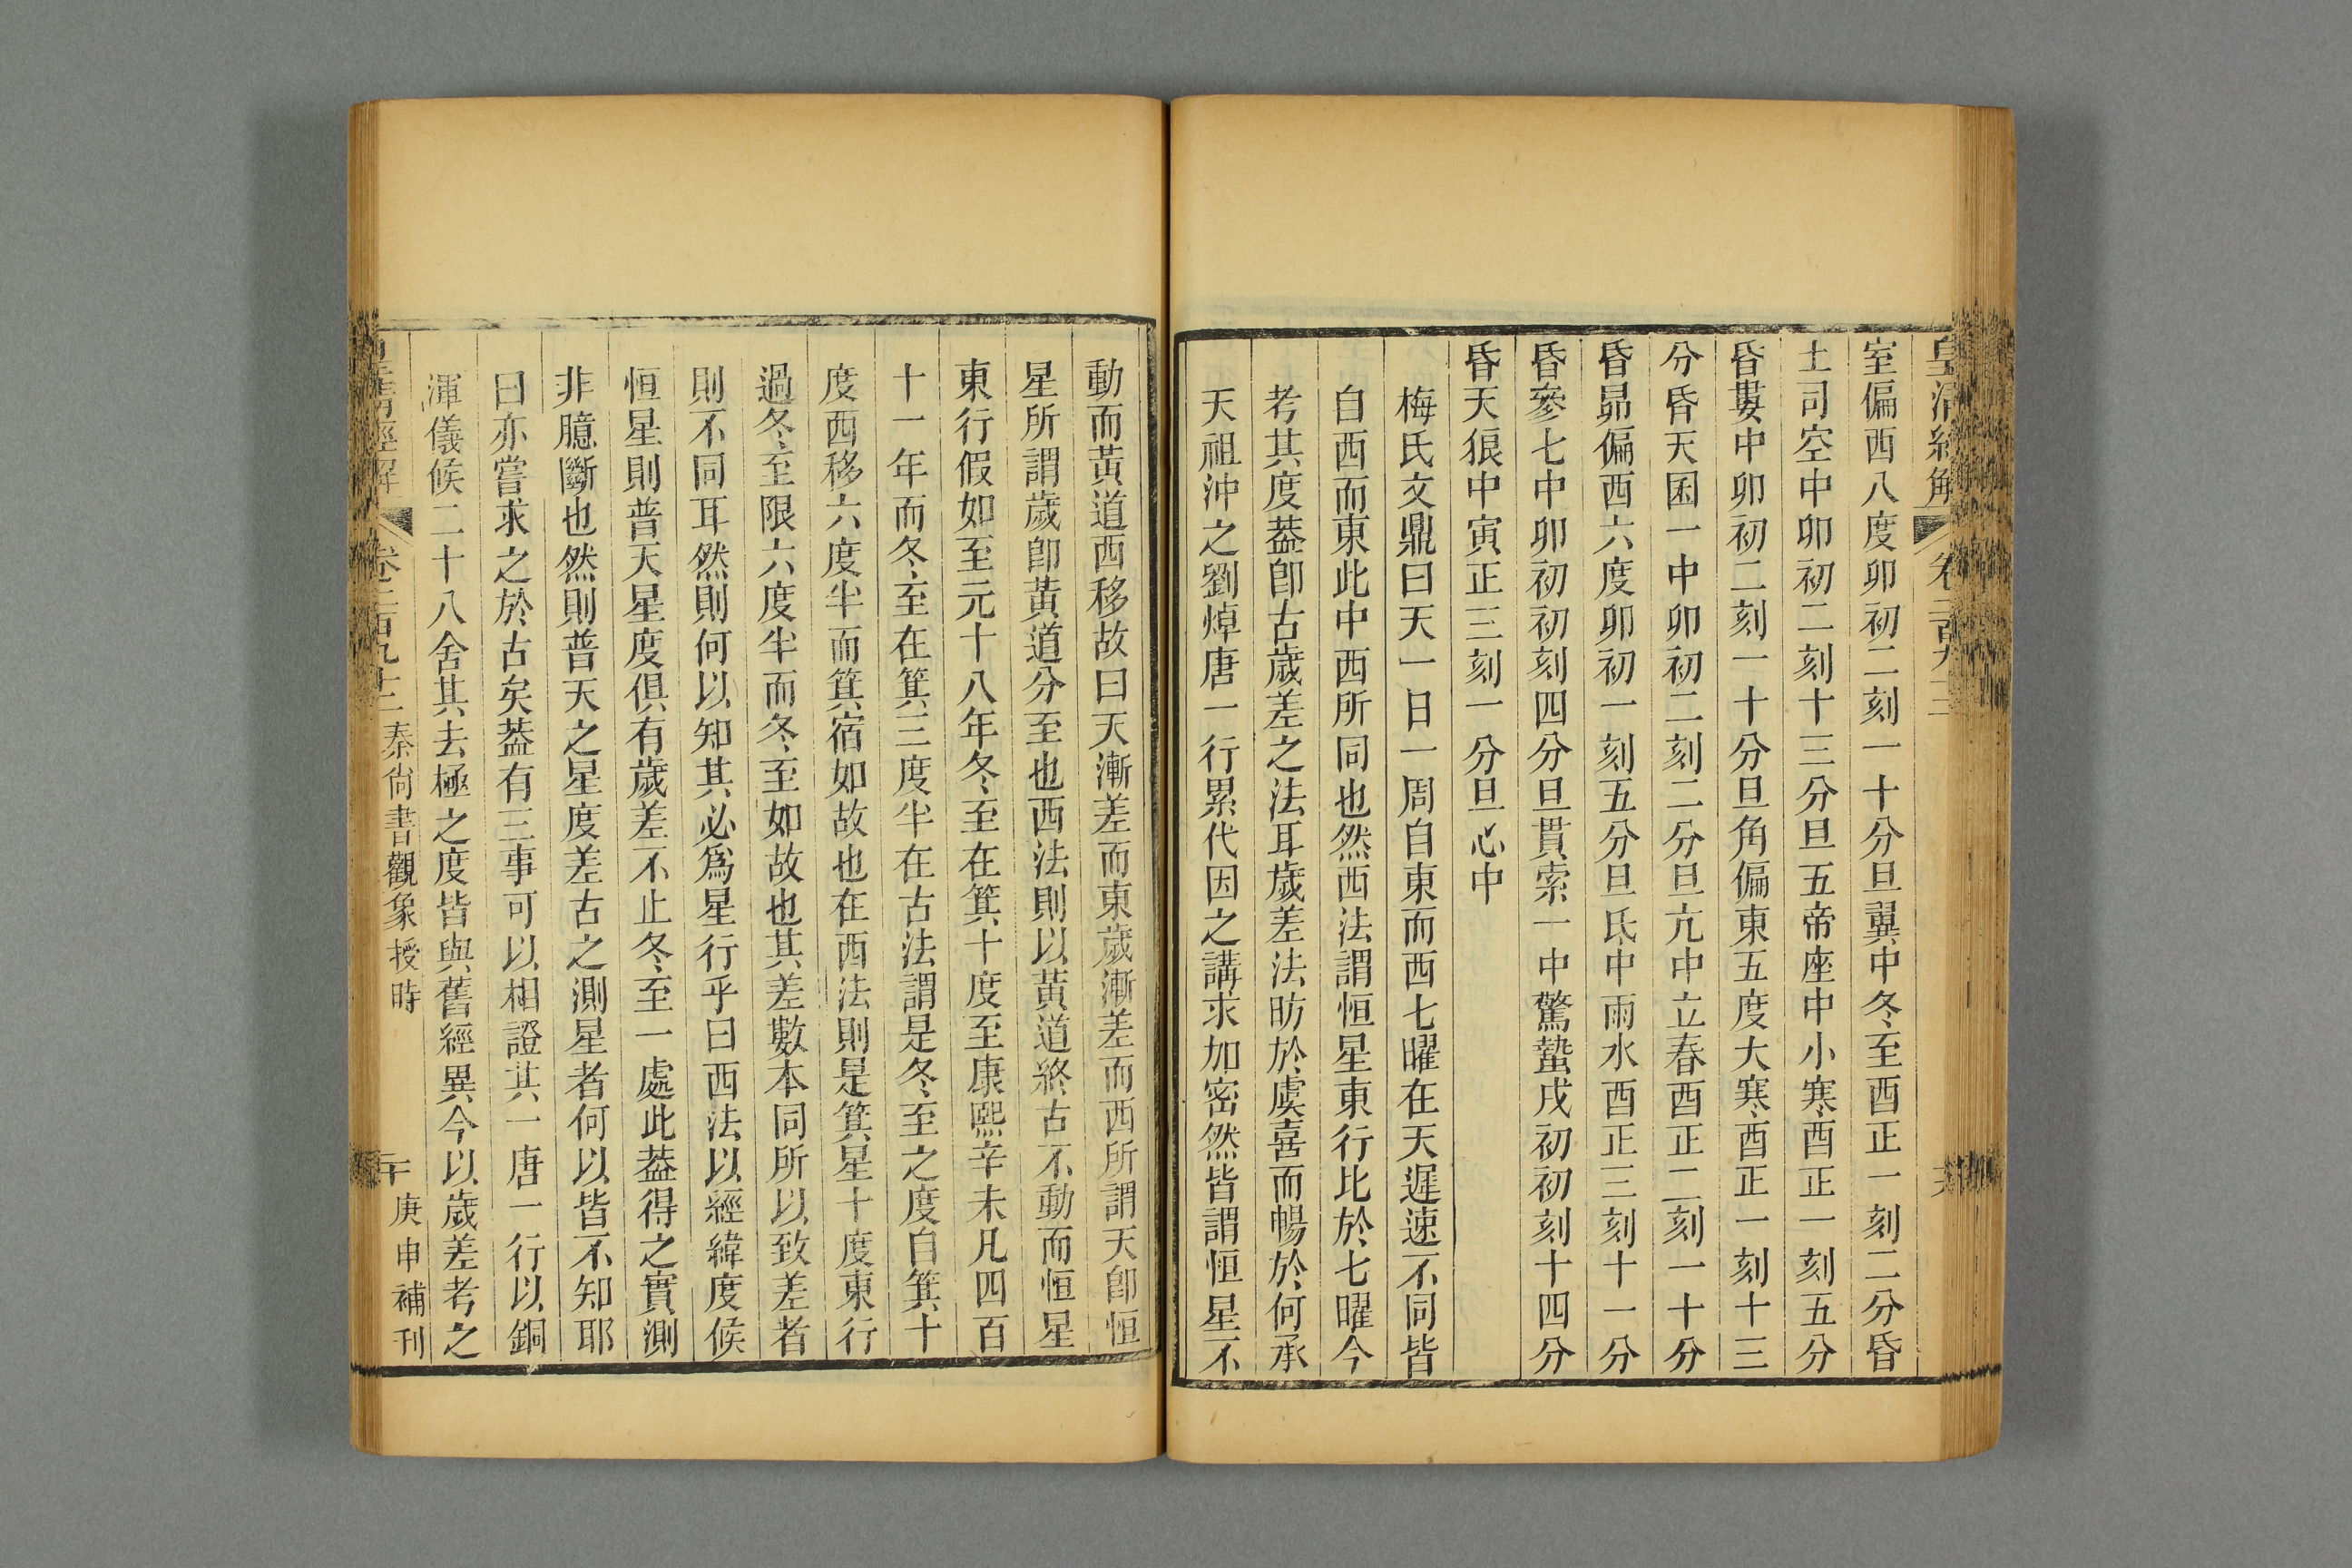 皇清經解 卷二百九十二
室偏西八度卯初二刻一十分旦翼中冬至酉正一刻二分昏
土司空中卯初二刻十三分旦五帝座中小寒酉正一刻五分
昏婁中卯初二刻一十分旦角偏東五度大寒酉正一刻十三
分昏天囷一中卯初二刻二分旦亢中立春酉正二刻一十分
昏昴偏西六度卯初一刻五分旦氐中雨水酉正三刻十一分
昏參七中卯初初刻四分旦貫索一中驚蟄戌初初刻十四分
昏天狼中寅正三刻一分旦心中
梅氏文鼎曰天一日一周自東而西七曜在天遲速不同皆
自西而東此中西所同也然西法謂恒星東行比於七曜今
考其度葢卽古歲差之法耳歲差法昉於虞喜而暢於何承
天祖沖之劉焯唐一行累代因之講求加密然皆謂恒星不
動而黃道西移故曰天漸差而東歲漸差而西所謂天卽恒
星所謂歲卽黃道分至也西法則以黃道終古不動而恒星
東行假如至元十八年冬至在箕十度至康熙辛未凡四百
十一年而冬至在箕三度半在古法謂是冬至之度自箕十
度西移六度半而箕宿如故也在西法則是箕星十度東行
過冬至限六度半而冬至如故也其差數本同所以致差者
則不同耳然則何以知其必爲星行乎曰西法以經緯度候
恒星則普天星度俱有歲差不止冬至一處此葢得之實測
非臆斷也然則普天之星度差古之測星者何以皆不知耶
曰亦嘗求之於古矣葢有三事可以相證其一唐一行以銅
渾儀候二十八舍其去極之度皆與舊經異今以歲差考之
皇清經解 卷二百九十二 秦尙書觀象授時 二十 庚申補刊